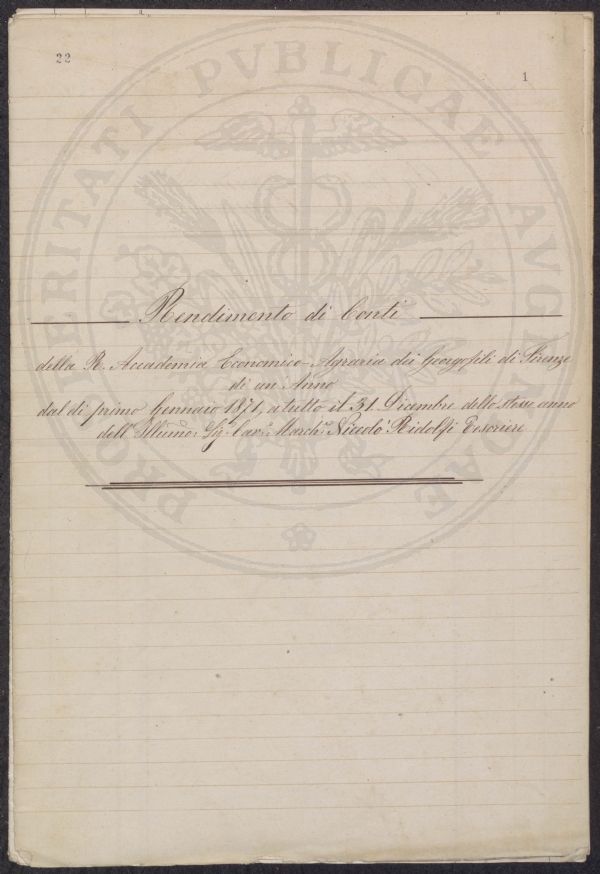 22
1
PROSPERITATI PVBLICAE AVGENDAE
Rendimento di Conti
della R. Accademia Economico-Agraria dei Georgofili di Firenze
di un Anno
dal dì primo Gennaio 1871, a tutto il 31 Dicembre dello stesso anno
dell' Illumo: Sig: Cav: March: Niccolò Ridolfi Tesoriere